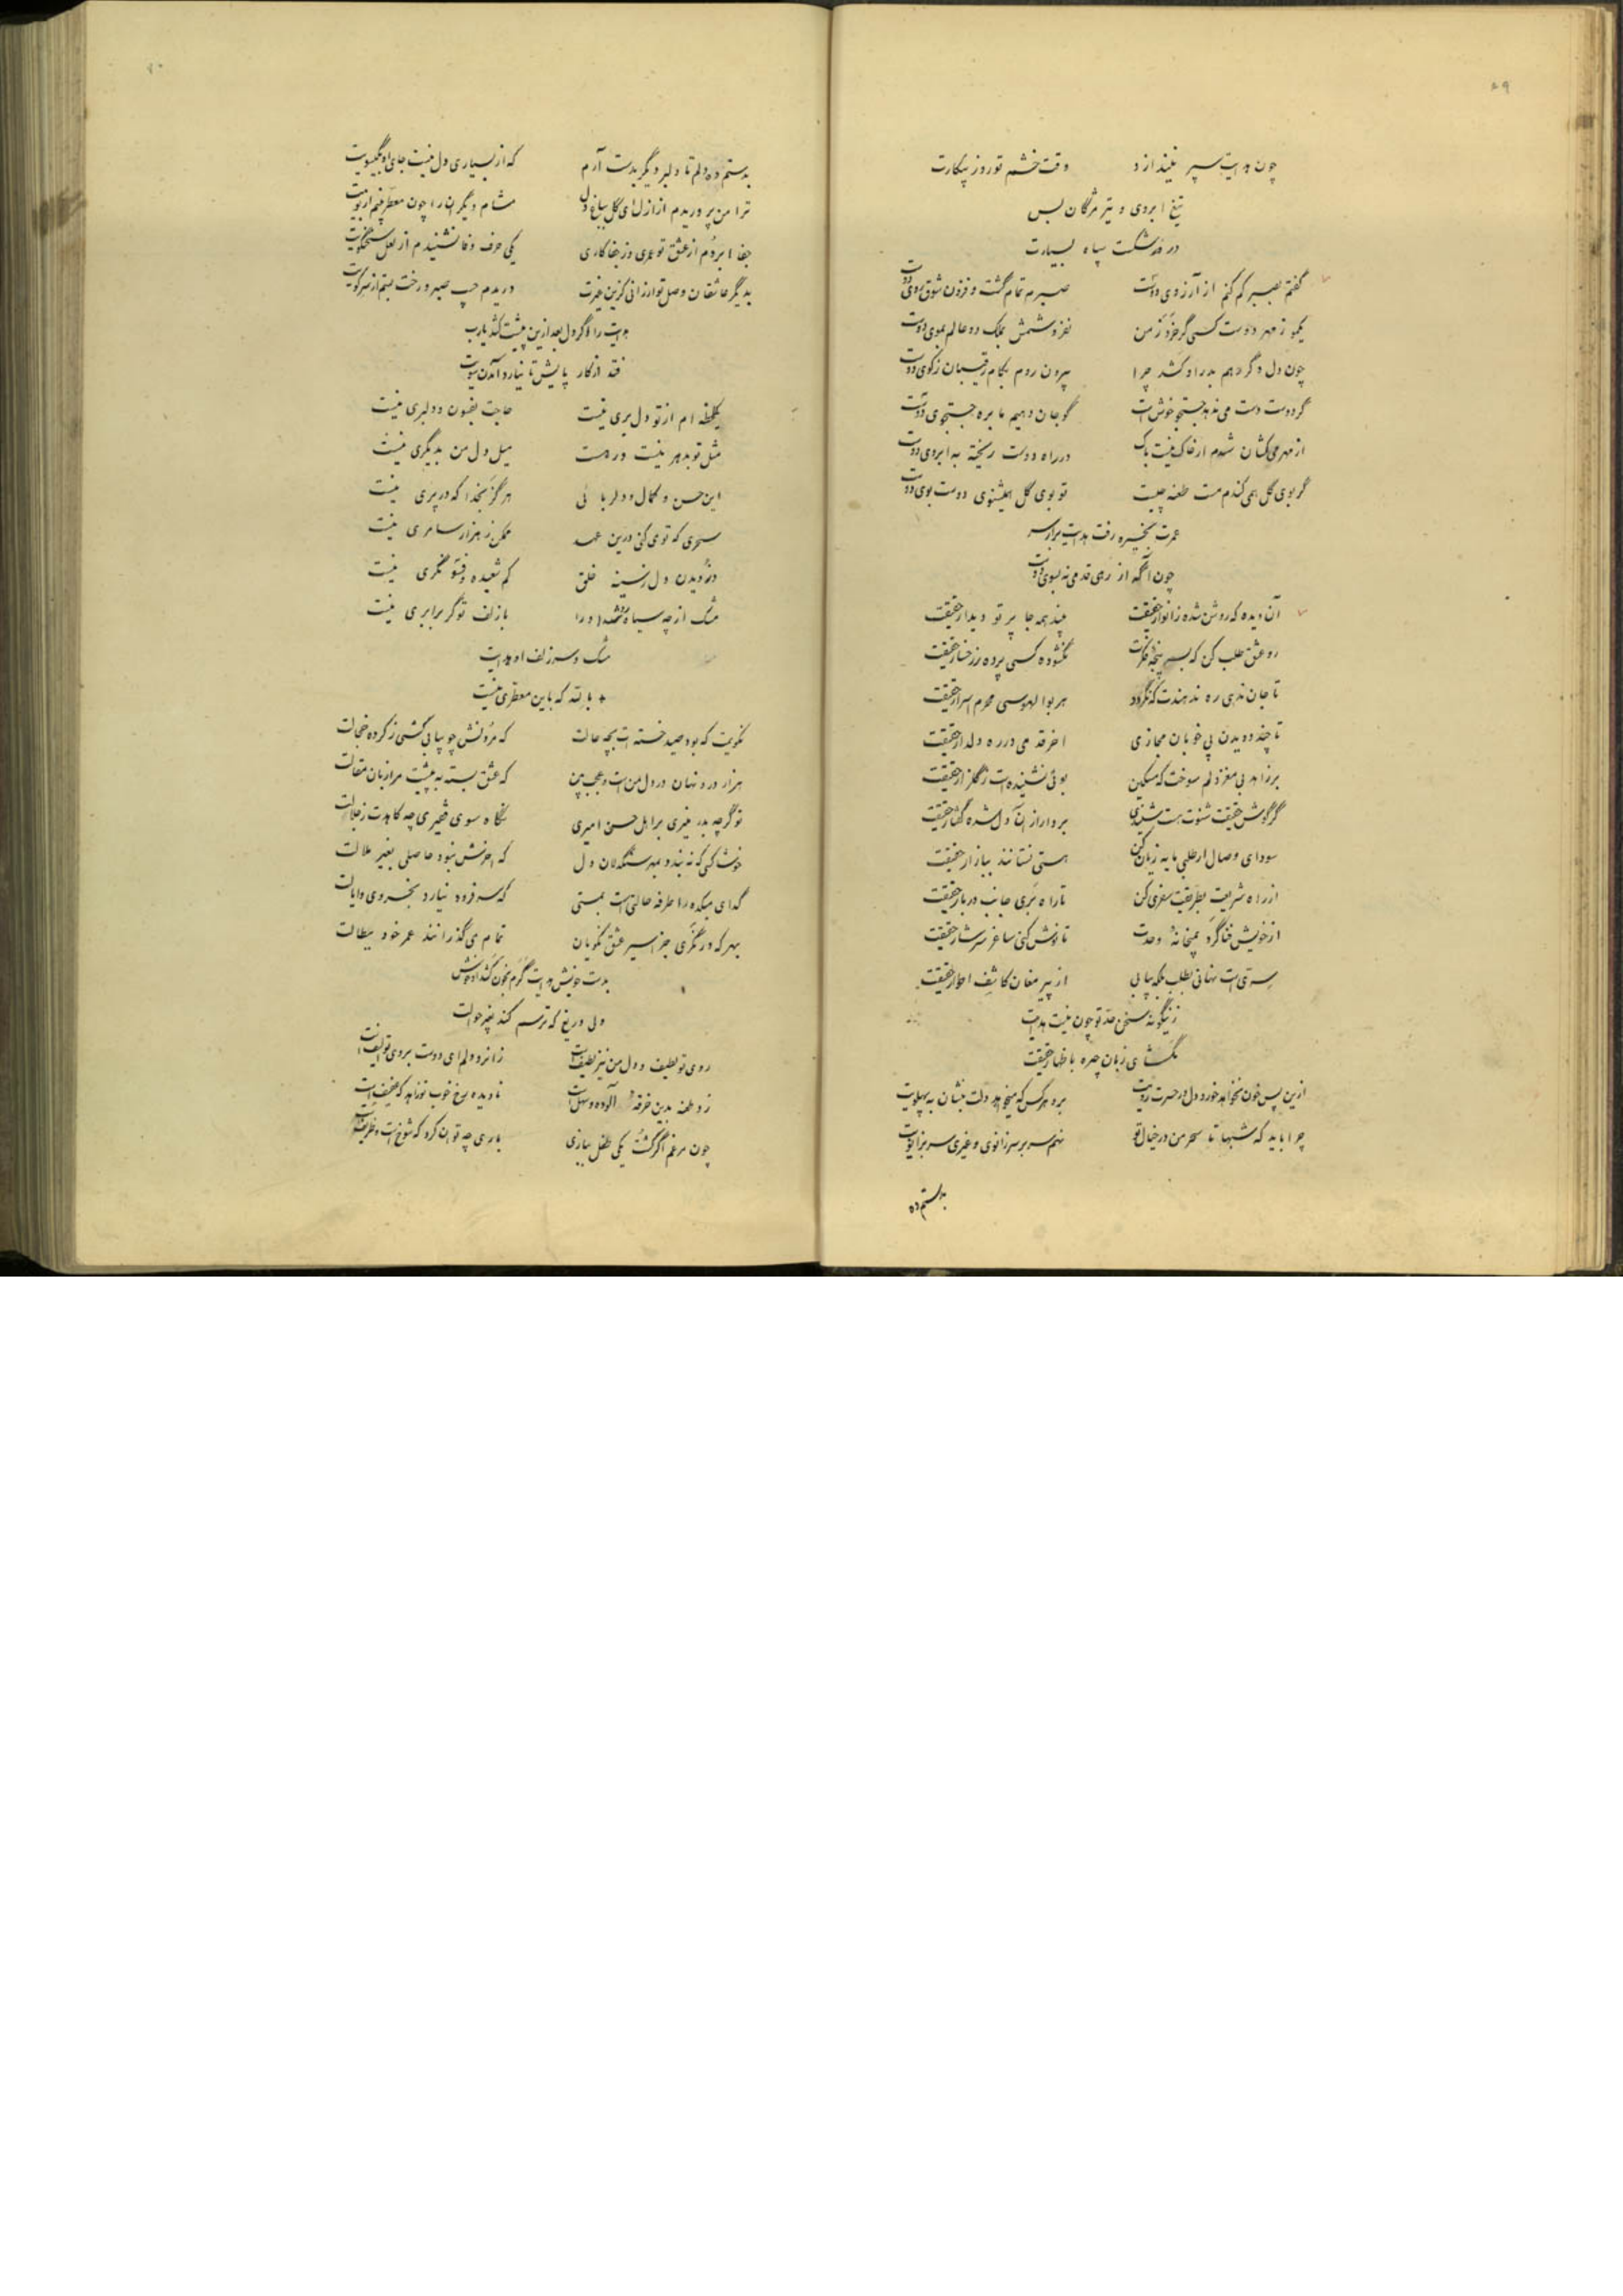 ۵۹
چون هدایت سپر نیندازد وقت خشم تو روز پیکارت
تیغ ابروی و تیر مژگان بس
در شکست سپاه بسیارت
گفتم بصبر کم کنم از آرزوی دوست صبرم تمام گشت و فزون شوق روی دوست
یکمو ز مهر دوست کسی گر خرد ز من نفروشمش بملک دو عالم بموی دوست
چون دل دگر دهم بدر او کشد چرا بیرون روم بکام رقیبان ز کوی دوست
گر دوست دست می ندهد جستجو خوش است گو جان دهیم ما بره جستجوی دوست
از مهر می کشان شدم ار خاک نیست باک در راه دوست ریخته به ابروی دوست
گر بوی گل همی کندم مست طعنه چیست تو بوی گل همیشنوی دوست بوی دوست
عمرت بخیره رفت هدایت برار سر
چون آگه از رهی قدمی نه بسوی دوست
آن دیده که روشن شده ز انوار حقیقت بیند همه جا پرتو دیدار حقیقت
رو عشق طلب کن که بسر پنجه فکرت نگشوده کسی پرده ز رخسار حقیقت
تا جان ندهی ره ندهندت که نگردد هر بوالهوسی محرم اسرار حقیقت
تا چند دویدن پی خوبان مجازی آخر قدمی در ره دلدار حقیقت
بر زاهد بی مغز دلم سوخت که مسکین بوئی نشنیده است ز گلزار حقیقت
گر گوش حقیقت شنوت هست شنیدی بر دار از آن دل شده گفتار حقیقت
سودای وصال ار طلبی مایه زیان کن هستی نستانند ببازار حقیقت
از راه شریعت بطریقت سفری کن تا راه بری جانب دربار حقیقت
از خویش فنا گرد بمیخانه وحدت تا نوش کنی ساغر سرشار حقیقت
سری است نهانی بطلب بلکه بیابی از پیر مغان کاشف اطوار حقیقت
زینگونه سخن حد تو چون نیست هدایت
نگشای زبان چیره باظهار حقیقت
ازین پس خون نخواهد خورد دل در حسرت رویت برو هر کس که میخواهد دلت بنشان به پهلویت
چرا باید که شبها تا سحر من در خیال تو نهم سر بر سر زانوی و غیری سر بزانویت
بدستم ده
۶۰
بدستم ده دلم تا دلبر دیگر بدست آرم که از بسیاری دل نیست جای او بگیسویت
ترا من پروریدم از ازل ای گل بباغ دل مشام دیگران را چون معطر بینم از بویت
جفا بردم از عشق تو عمری وز جفا کاری یکی حرف وفا نشنیدم از لعل سخنگویت
بدیگر عاشقان وصل تو ارزانی کزین غیرت دریدم جیب صبر و رخت بستم از سر کویت
هدایت را اگر دل بعد ازین پیشت کشد یارب
فتد از کار پایش تا نیارد آمدن سویت
یکلحظه ام از تو دل بری نیست حاجت بفسون و دلبری نیست
مثل تو بدهر نیست ور هست میل دل من بدیگری نیست
این حسن و کمال و دلربائی هرگز بخدا که در پری نیست
سحری که توی کنی درین عهد ممکن ز هزار سامری نیست
دزدیدن دل ز سینه خلق کم شعبده و فسونگری نیست
مشک از چه سیاه شد او را با زلف تو گر برابری نیست
مشک و سر زلف او هدایت
بالله که باین معطری نیست
نگویت که بود صید خسته ات بچه حالت که مردنش چو بیابی کشی ز کرده خجالت
هزار درد نهان در دل من است و عجب بین که عشق بسته به پیشت مرا زبان مقالت
تو گرچه بدر منیری بر اهل حسن امیری نگاه سوی فقیری چه کاهدت ز جلالت
خوشا کسی که نه بندد بمهر سنگدلان دل که آخرش نبود حاصلی بغیر ملالت
گدای میکده را طرفه حالتی است بمستی که سر فرود نیارد بخسروی و ایالت
بهر که در نگری جز اسیر عشق نکویان تمام می گذرانند عمر خود ببطالت
بدست خویش هدایت گرم بخون کشد
ولی دریغ که ترسم کند بغیر حوالت
روی تو لطیف و دل من نیز لطیف است زانرو دلم ای دوست بروی تو الیف است
زد طعنه بدین خرقه آلوده و سهل است نادیده رخ خوب تو زاهد که عفیف است
چون مرغم اگر کشت یکی طفل ببازی باری چه توان کرد که شوخ است و ظریف است